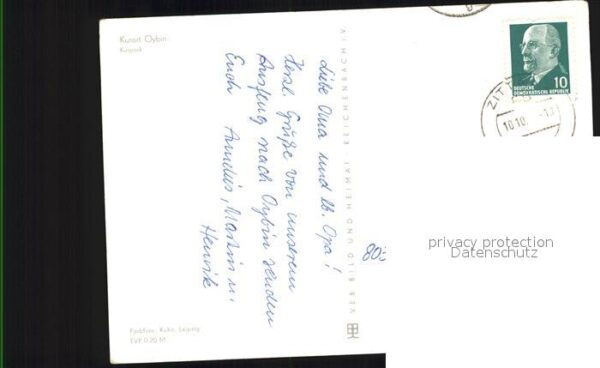 Kurort Oybin
Kurpark
Liebe Oma und lb. Opa!
Herzl. Grüße von unserem
Ausflug nach Oybin senden
Euch Annelies, Martin u.
Henrik
80,-
VEB BILD UND HEIMAT REICHENBACH i. V.
Farbfoto: Kühn, Leipzig
EVP 0.20 M
DEUTSCHE
DEMOKRATISCHE REPUBLIK
10
ZITT
10.10.
-13
privacy protection
Datenschutz